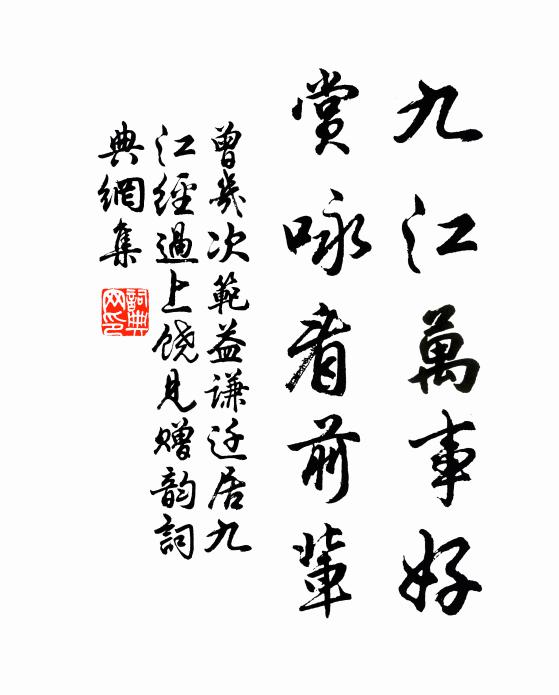 九江萬事好
賞咏看前輩
曾幾次範益謙迁居九
江經過上饶見赠韵詞
典網集
詞典網印